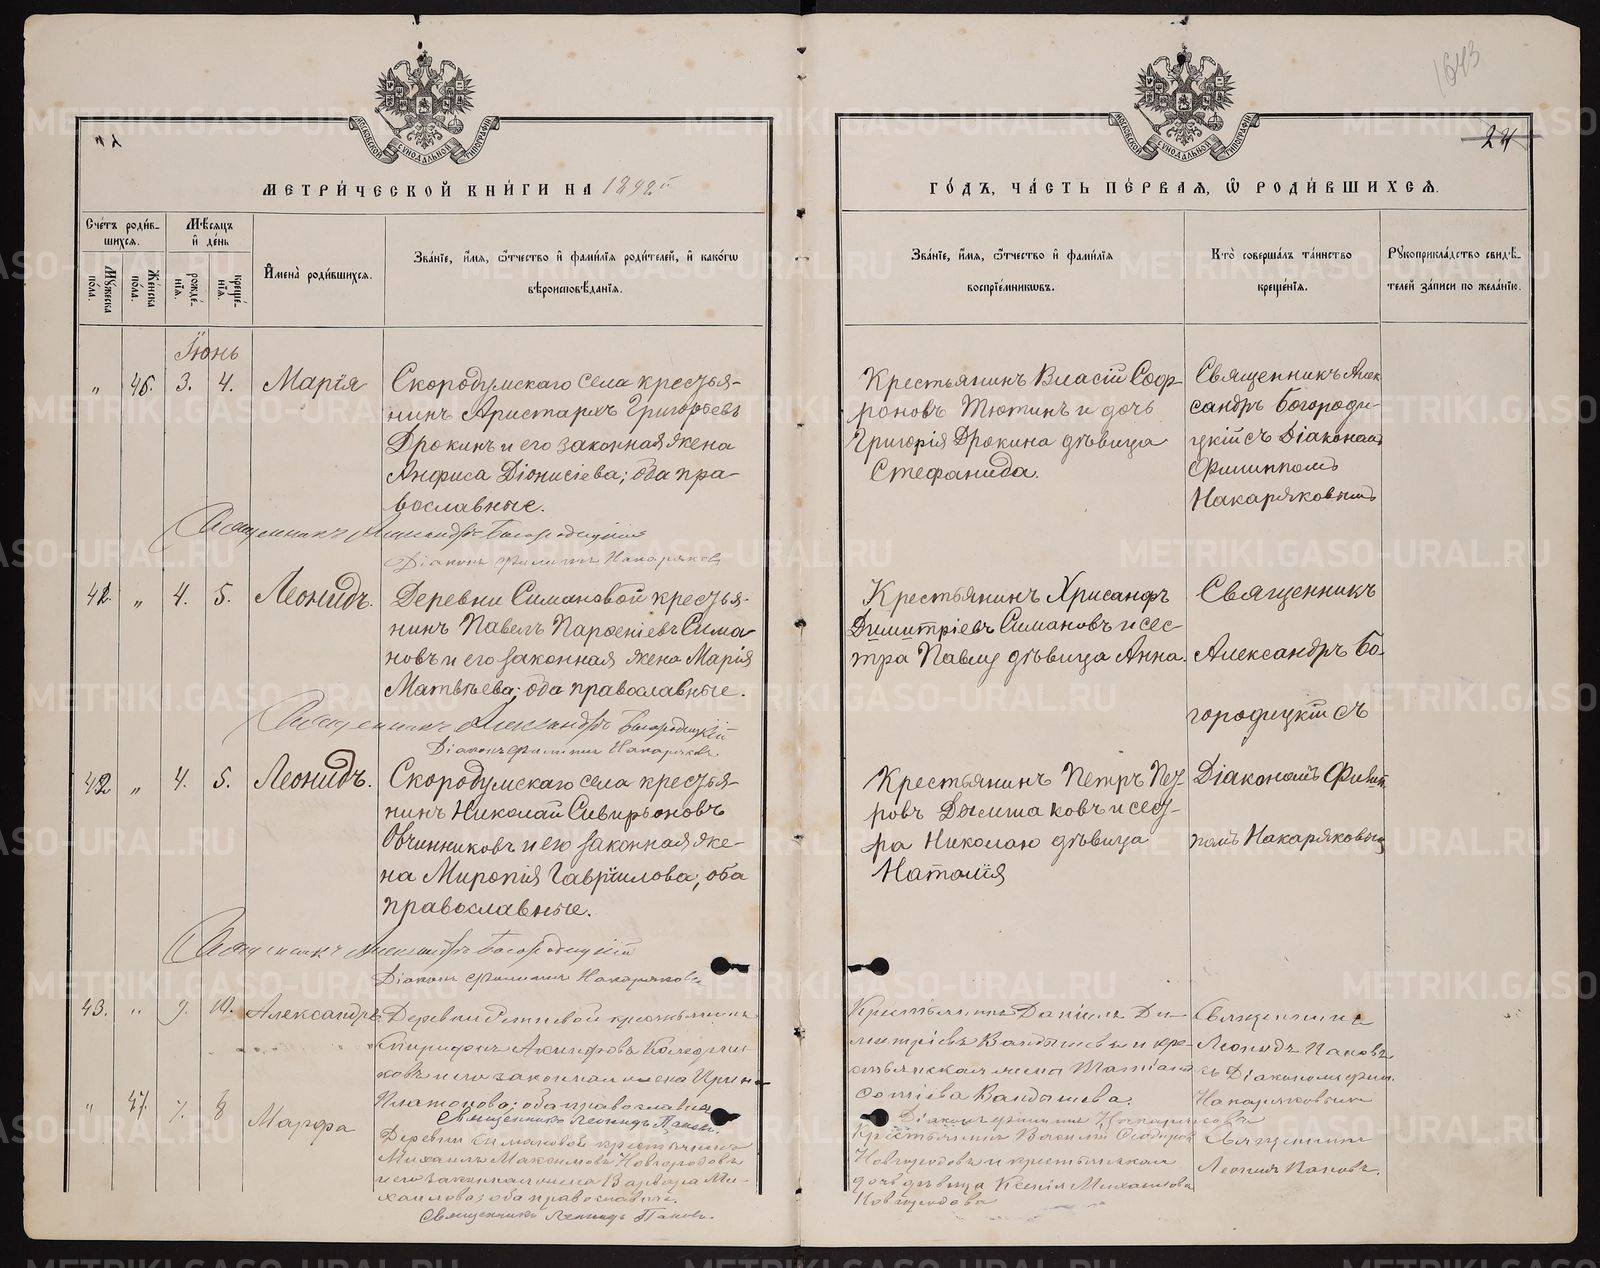 1643
24
МЕТРИЧЕСКОЙ КНИГИ НА 1892 г.
ГОДЪ, ЧАСТЬ ПЕРВАЯ, Ѿ РОДИВШИХСѦ.
Счетъ родившихсѧ.
Мужеска пола.
Женска пола.
Мѣсѧцъ и день
рожденїѧ.
крещенїѧ.
Имена родившихсѧ.
Званїе, имѧ, ѿчество и фамилїѧ родителей, и какогѡ
вѣроисповѣданїѧ.
Званїе, имѧ, ѿчество и фамилїѧ
воспрїемникѡвъ.
Кто совершалъ таинство
крещенїѧ.
Рукоприкладство свидѣ-
телей записи по желанїю.
МОСКОВСКОЙ СУНОДАЛЬНОЙ ТИПОГРАФІИ
МОСКОВСКОЙ СУНОДАЛЬНОЙ ТИПОГРАФІИ
Іюнь
" 46. 3. 4. Марія
Скородумскаго села крестья-
нинъ Аристархъ Григорьевъ
Дрокинъ и его законная жена
Анфиса Діонисіева; оба пра-
вославные.
Священникъ Александръ Богородицкій
Діаконъ Филиппъ Накаряковъ
Крестьянинъ Власій Соф-
роновъ Тютинъ и дочь
Григорія Дрокина дѣвица
Стефанида.
Священникъ Алек-
сандръ Богороди-
цкій съ Діакономъ
Филиппомъ
Накаряковымъ
41. " 4. 5. Леонидъ.
Деревни Симановой крестья-
нинъ Павелъ Парѳеніевъ Сима-
новъ и его законная жена Марія
Матвѣева; оба православные.
Священникъ Александръ Богородицкій
Діаконъ Филиппъ Накаряковъ
Крестьянинъ Хрисанфъ
Димитріевъ Симановъ и сес-
тра Павлу дѣвица Анна.
Священникъ
Александръ Бо-
городицкій съ
42. " 4. 5. Леонидъ.
Скородумскаго села крестья-
нинъ Николай Сивирьяновъ
Овчинниковъ и его законная же-
на Миропія Гавріилова; оба
православные.
Священникъ Александръ Богородицкій
Діаконъ Филиппъ Накаряковъ
Крестьянинъ Петръ Пет-
ровъ и сест-
ра Николаю дѣвица
Наталія
Діакономъ Филип-
помъ Накаряковымъ
43. " 9. 10. Александръ
Деревни крестьянинъ
Спиридонъ Акинфовъ
и его законная жена Ирина
Платонова; оба православные
Священникъ Леонидъ Пановъ.
Крестьянинъ Даніилъ Ди-
митріевъ Вандышевъ и кре-
стьянская жена Татіана
Вандышева.
Діаконъ Филиппъ Накаряковъ
Священникъ
Леонидъ Пановъ
съ Діакономъ Фил.
Накаряковымъ
" 47. 7. 8 Марфа
Деревни Симановой крестьянинъ
Михаилъ Максимовъ Новгородовъ
и его законная жена Варвара Ми-
хаилова; оба православные.
Священникъ Леонидъ Пановъ.
Крестьянинъ Василій
Новгородовъ и крестьянская
дочь дѣвица Ксенія Михаилова
Новгородова
Священникъ
Леонидъ Пановъ.
METRIKI.GASO-URAL.RU